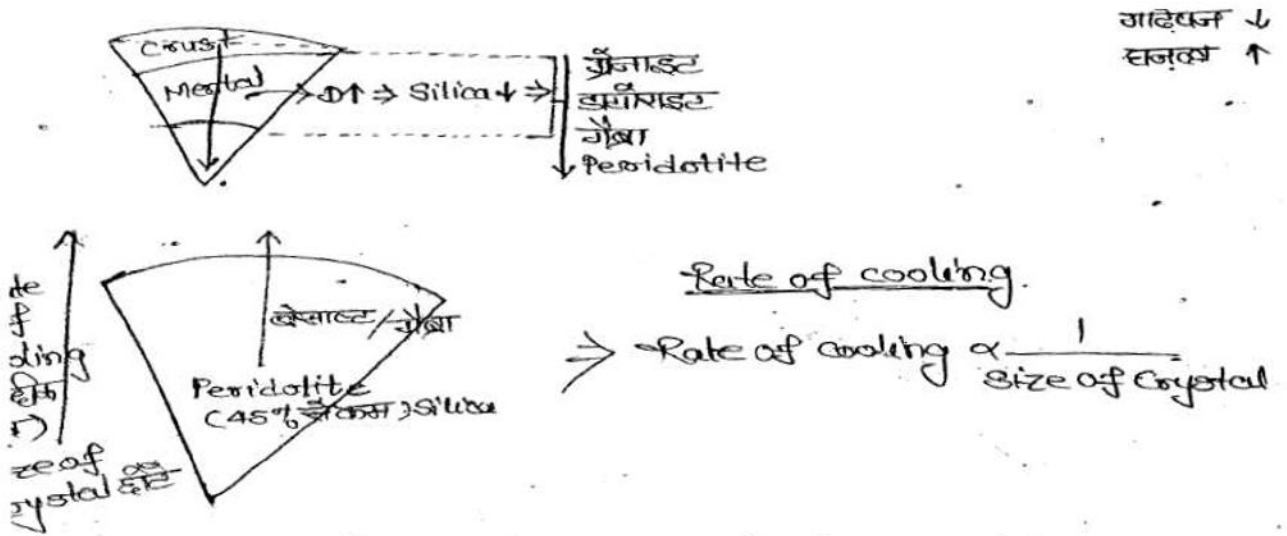 गाढ़ेपन ↓
घनत्व ↑
Crust
Mental → D↑ ⇒ Silica ↓ ⇒
ग्रेनाइट
डायोराइट
गैब्रो
Peridotite
te
f
oling
r)
ze of
rystal छोटे
बेसाल्ट/गैब्रो
Peridolite
(45% से कम) Silica
Rate of cooling
⇒ Rate of cooling ∝ 1
Size of Crystal